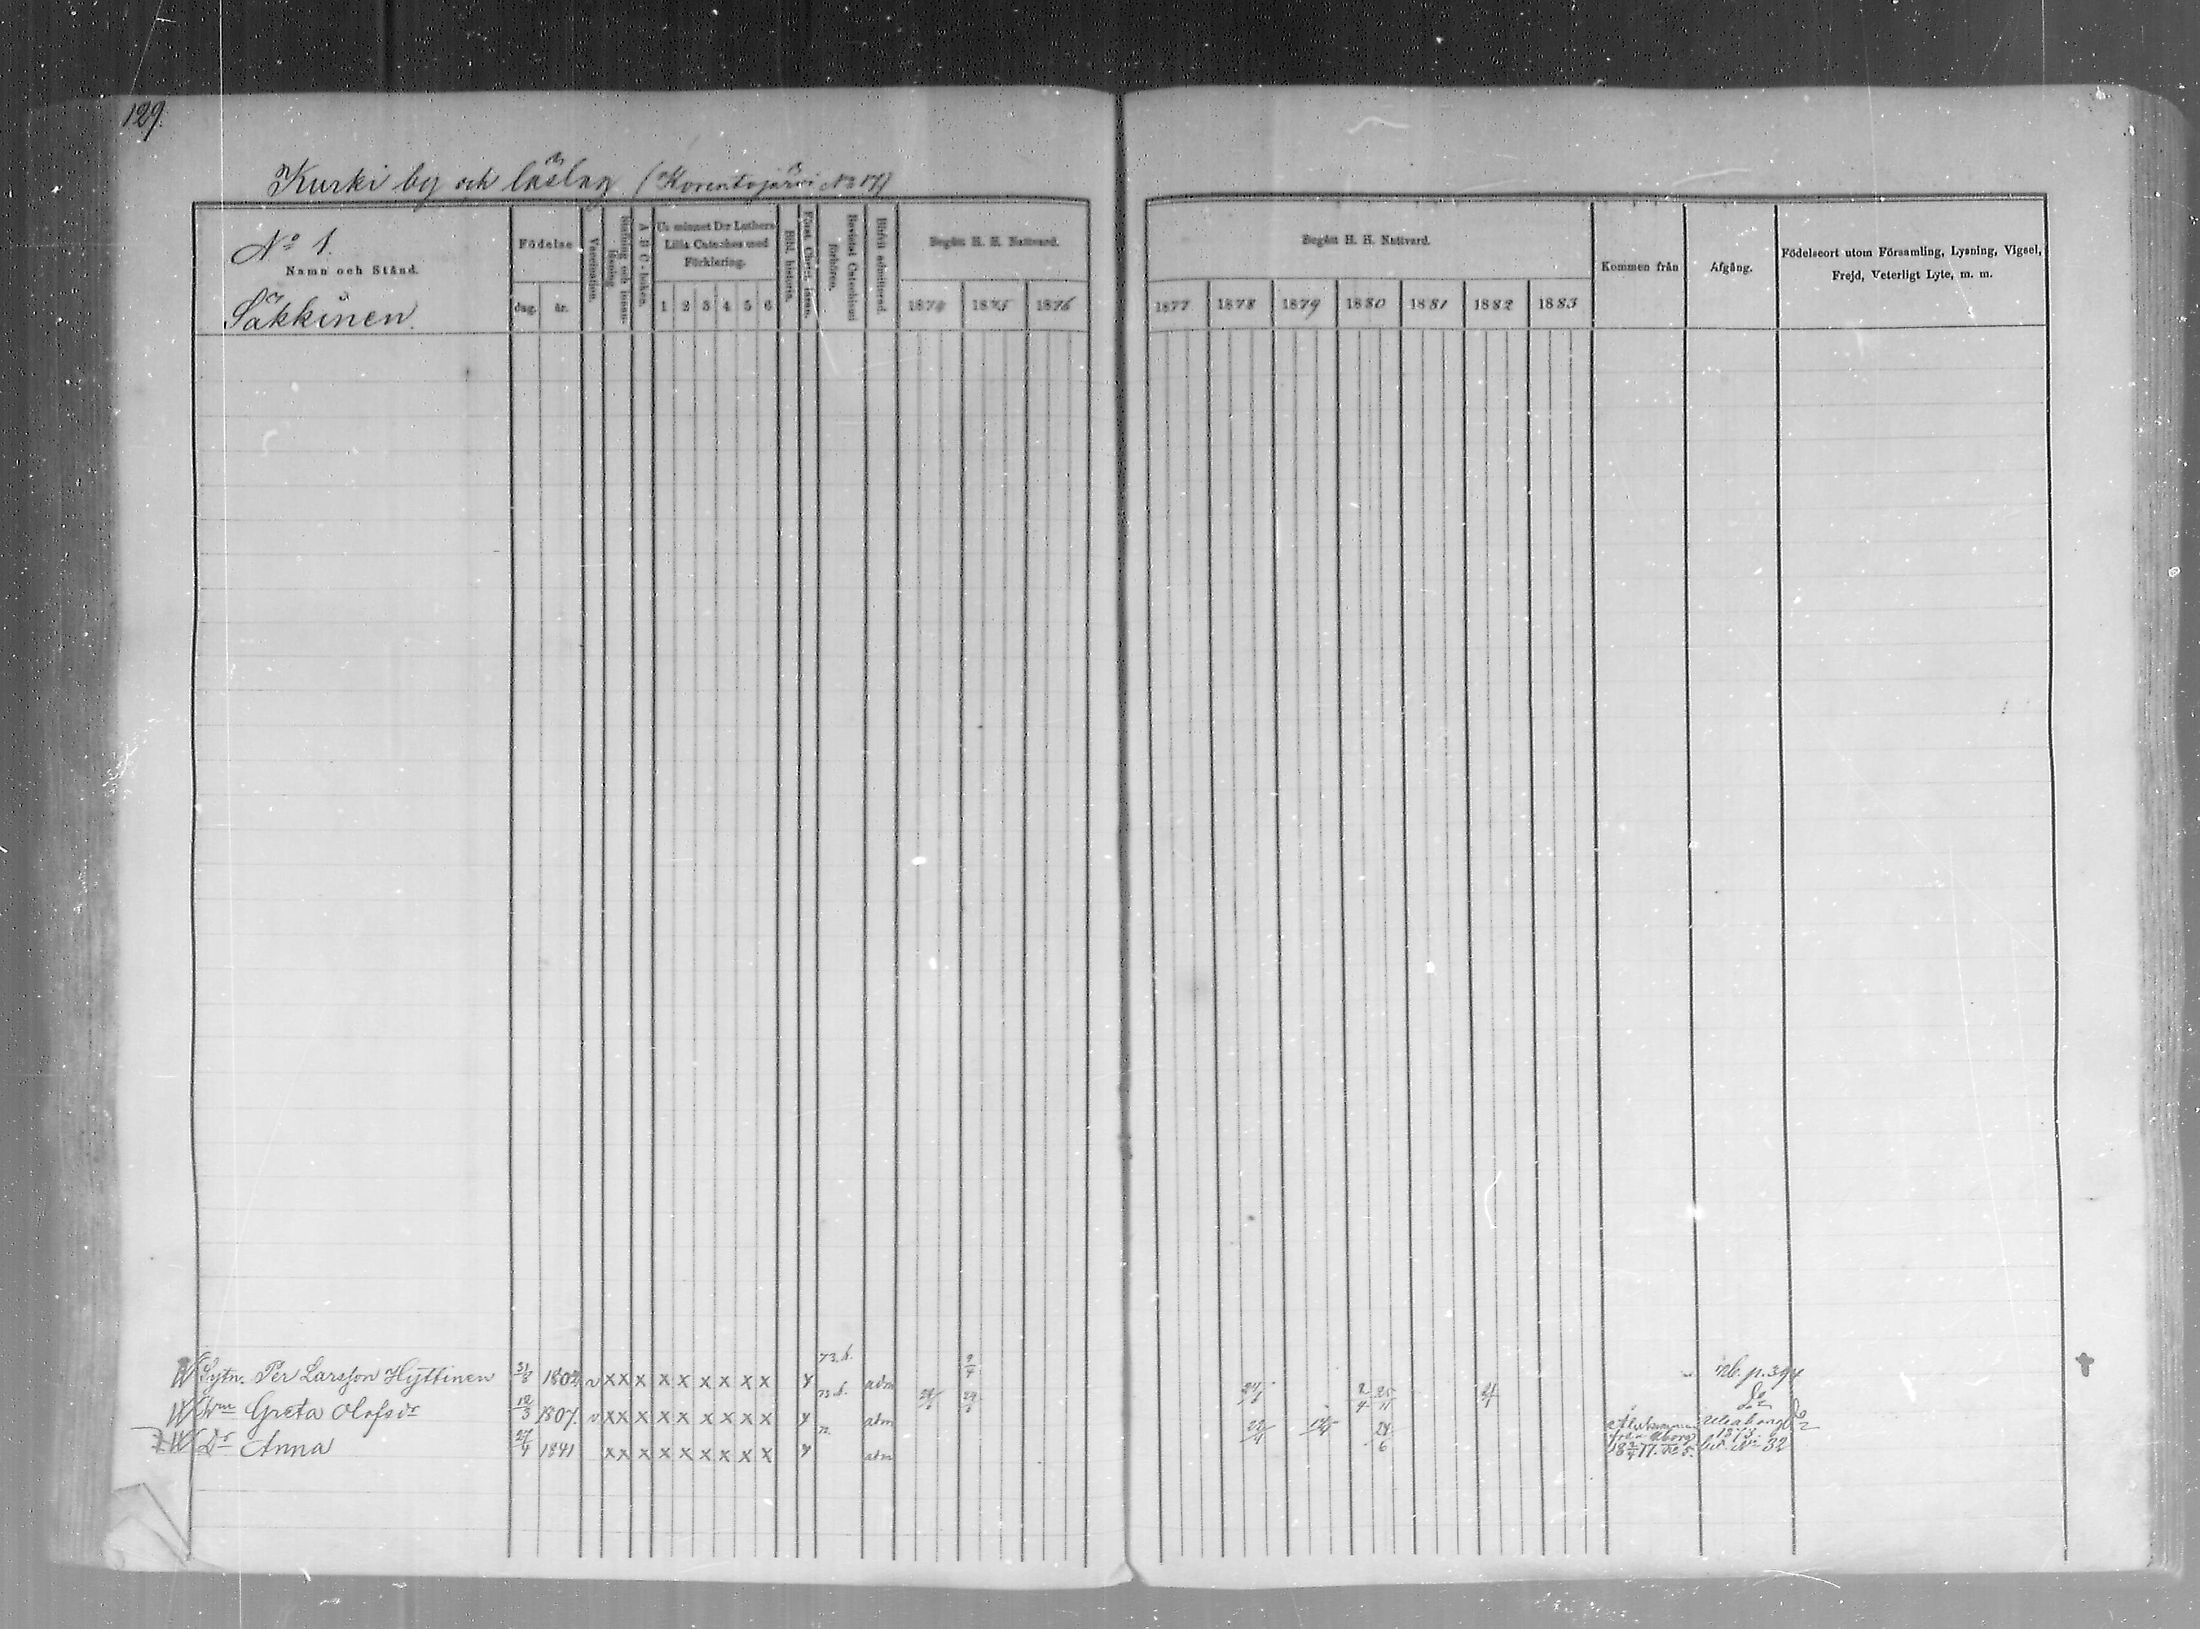 129.
Kurki by och läslag (Korentojärvi No 17)
No 1.
Namn och Stånd.
Säkkinen.
Födelse
dag. år.
Vaccination.
A B C-boken.
Ur minnet Dr Luthers
Lilla Cateches med
Förklaring.
1 2 3 4 5 6
Bibl. historia.
Först. Christ. läran.
Bevistat Catechismi
förhören.
Blifvit admitterad.
Begått H. H. Nattvard.
1874 1875 1876
Begått H. H. Nattvard.
1877 1878 1879 1880 1881 1882 1883
Kommen från
Afgång.
Födelseort utom Församling, Lysning, Vigsel,
Frejd, Veterligt Lyte, m. m.
Sytn. Per Larsson Hyttinen 31/8 1802 v x x x x x x x x x y 73. adm 9/4 p. 394
Hun Greta Olofsdr 12/3 1807. v x x x x x x x x x y 73 adm 2/4 25/11 do
Dr Anna 27/4 1841 x x x x x x x x x y 72. adm 22/4 24/6 från Uborg Uleaborg
1873. No 32